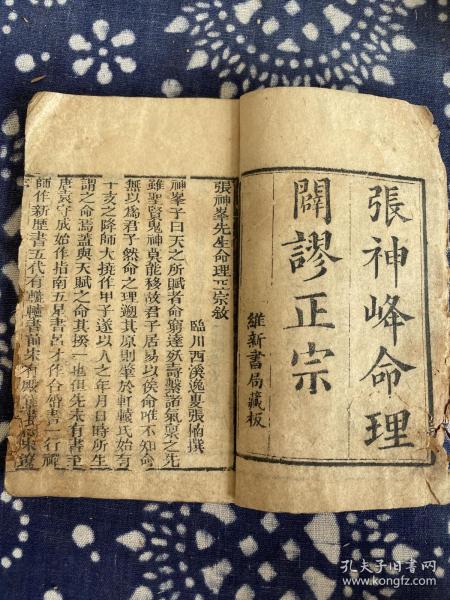 張神峰命理
闢謬正宗
維新書局藏板
張神峯先生命理正宗敘
臨川西溪逸叟張楠撰
神峯子曰天之所賦者命窮達妖諸繫諸氣稟之先
雖聖賢鬼神莫能移故君子居易以俟命唯不知命
無以爲君子然命之理遡其原則肇於軒轅氏始有
十亥之降師大撓作甲子遂以人之年月日時所生
謂之命焉蓋與天賦之命其揆一也但先未有書至
唐袁守成始作指南五星書呂才作合婚書一行禪
師作新歷書五代有
孔夫子旧书网
www.kongfz.com